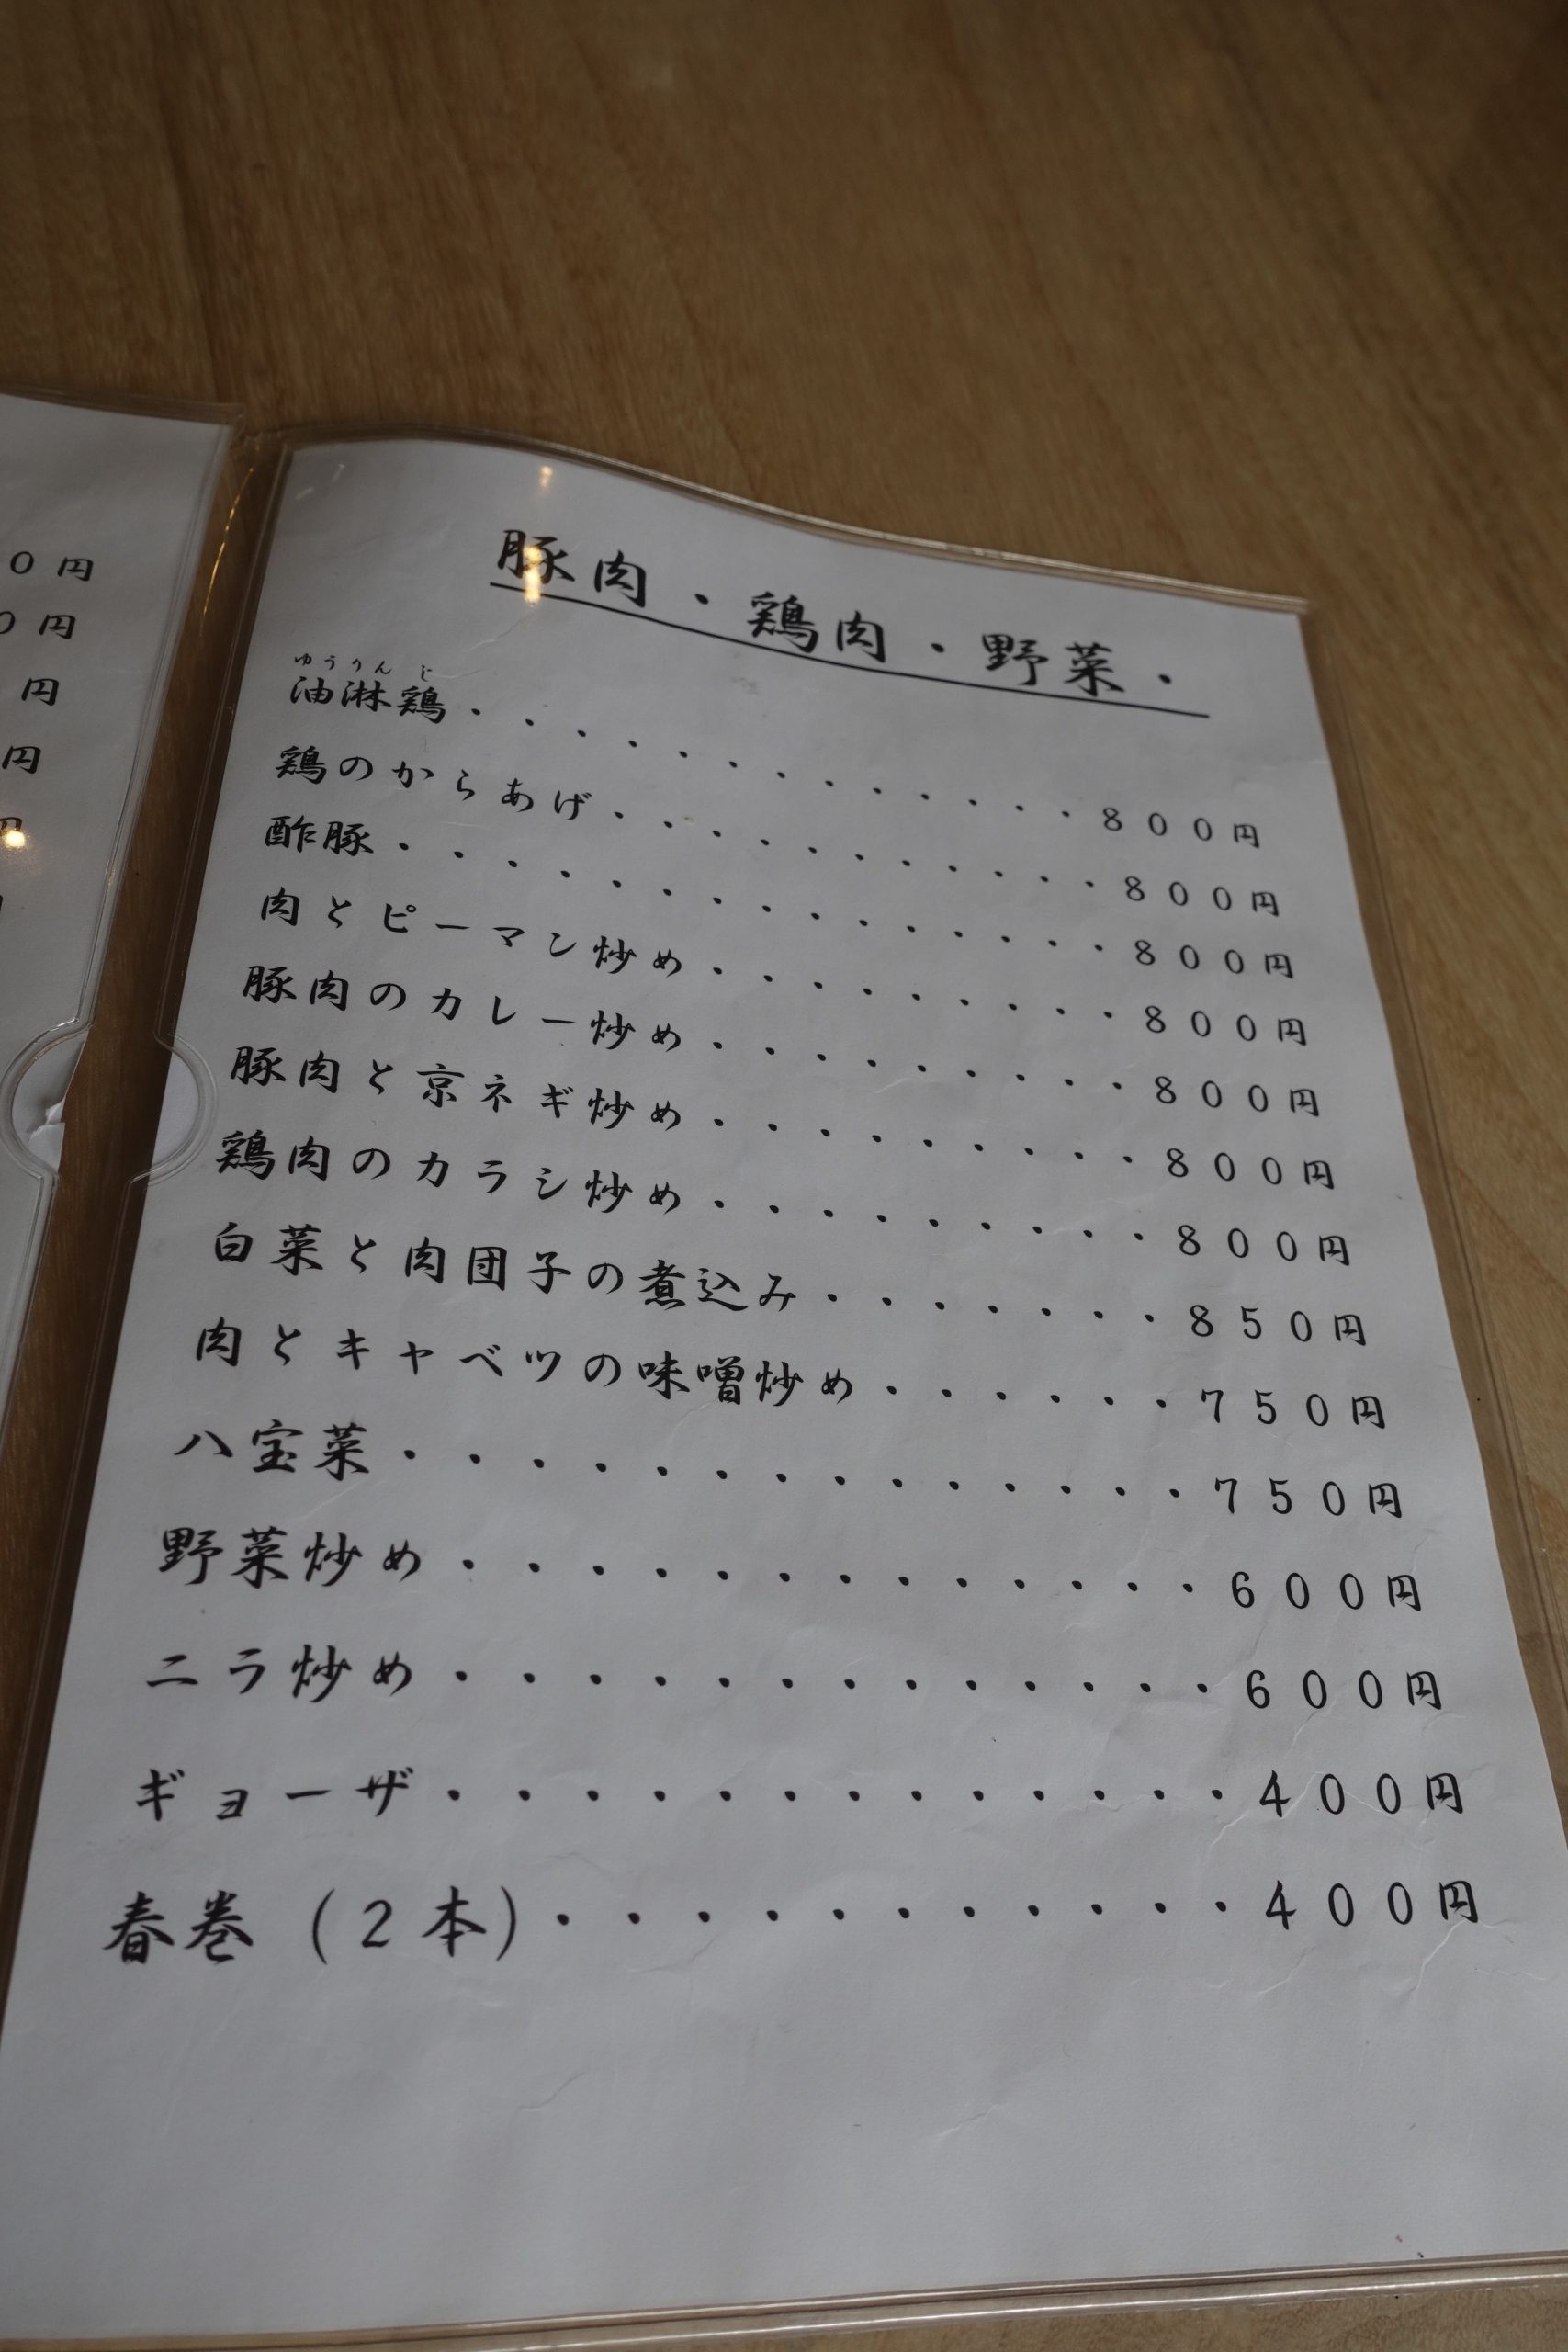 0円
0円
円
円
豚肉・鶏肉・野菜・
ゆうりんじ
油淋鶏・・・・・・・・・・・・・800円
鶏のからあげ・・・・・・・・・・・800円
酢豚・・・・・・・・・・・・・・・800円
肉とピーマン炒め・・・・・・・・・800円
豚肉のカレー炒め・・・・・・・・・800円
豚肉と京ネギ炒め・・・・・・・・・800円
鶏肉のカラシ炒め・・・・・・・・・800円
白菜と肉団子の煮込み・・・・・・・850円
肉とキャベツの味噌炒め・・・・・・750円
八宝菜・・・・・・・・・・・・・・750円
野菜炒め・・・・・・・・・・・・・600円
ニラ炒め・・・・・・・・・・・・・600円
ギョーザ・・・・・・・・・・・・・400円
春巻（2本）・・・・・・・・・・・400円